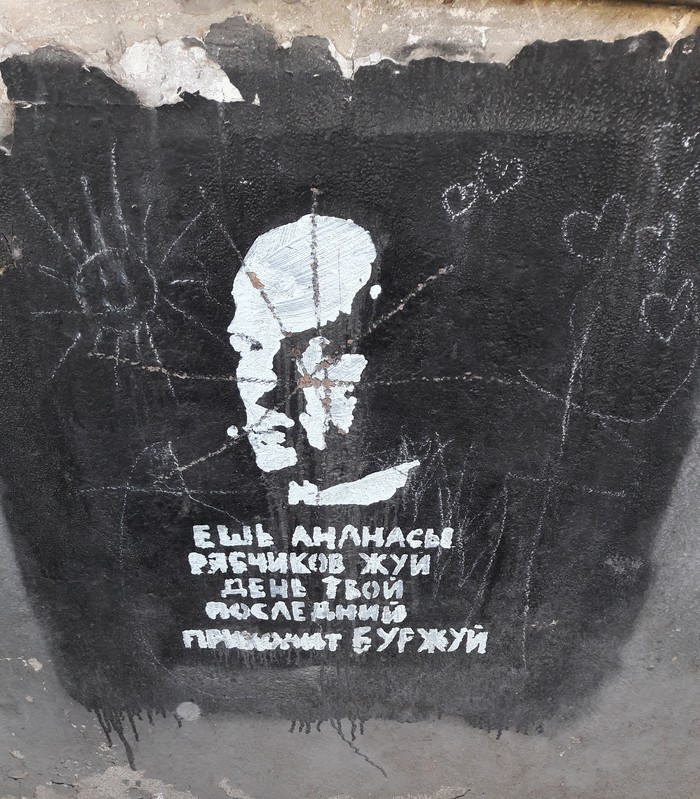 ЕШЬ АНАНАСЫ
РЯБЧИКОВ ЖУЙ
ДЕНЬ ТВОЙ
ПОСЛЕДНИЙ
ПРИХОДИТ БУРЖУЙ